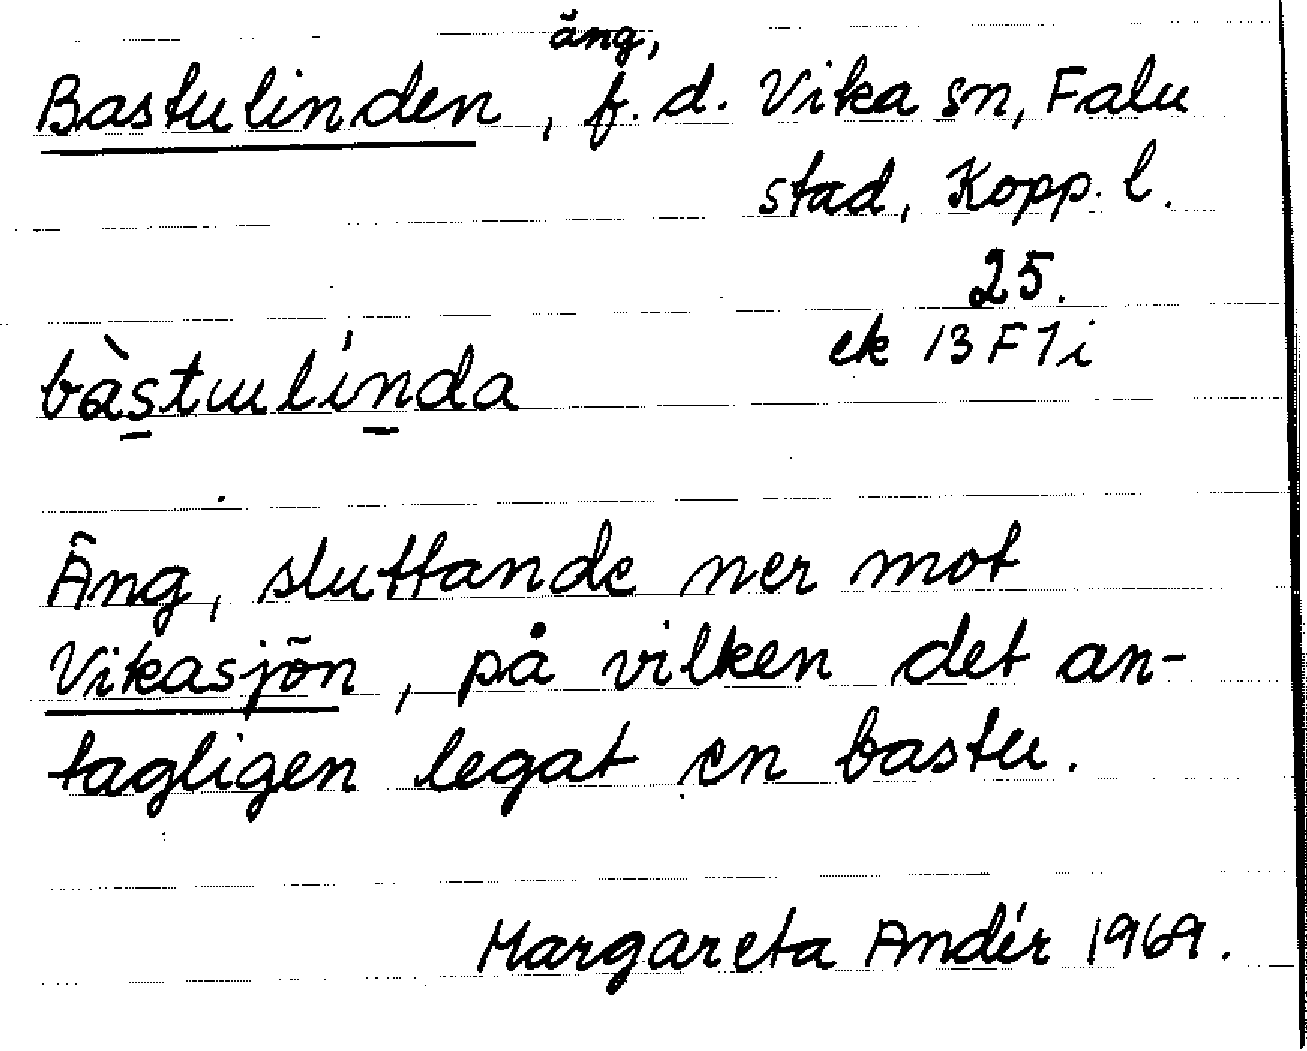 äng,
Bastulinden, f.d. Vika sn, Falu
stad, Kopp. l.
25.
ek 13 F 7 i
bàstɯlínda
Äng, sluttande ner mot
Vikasjön, på vilken det an-
tagligen legat en bastu.
Margareta Andér 1969.